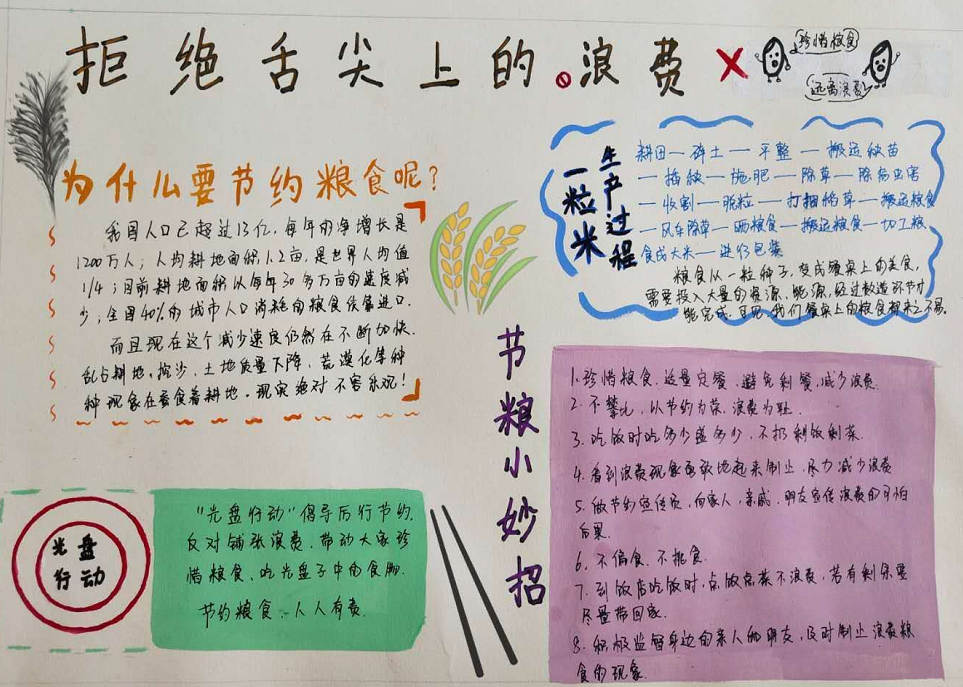 拒绝舌尖上的浪费
珍惜粮食
远离浪费
为什么要节约粮食呢?
我国人口已超过13亿,每年的净增长是
1200万人;人均耕地面积1.2亩,是世界人均值
1/4;目前耕地面积以每年30多万亩的速度减
少;全国40%的城市人口消耗的粮食依靠进口.
而且现在这个减少速度仍然在不断加快.
乱占耕地、挖沙、土地质量下降、荒漠化等种
种现象在蚕食着耕地.现实绝对不容乐观!
一粒米
生产过程
耕田—碎土—平整—搬运秧苗
—插秧—施肥—除草—除病虫害
—收割—脱粒—打捆稻草—搬运粮食
—风车除草—晒粮食—搬运粮食—加工粮
食成大米—进行包装
粮食从一粒种子,变成餐桌上的美食,
需要投入大量的资源、能源,经过数道环节才
能完成.可见,我们餐桌上的粮食都来之不易.
节粮小妙招
1.珍惜粮食.适量定餐.避免剩餐,减少浪费.
2.不攀比,以节约为荣.浪费为耻.
3.吃饭时吃多少盛多少,不扔剩饭剩菜.
4.看到浪费现象勇敢地起来制止,尽力减少浪费
5.做节约宣传员,向家人,亲戚,朋友宣传浪费的可怕
后果.
6.不偏食.不挑食.
7.到饭店吃饭时,点饭点菜不浪费,若有剩余要
尽量带回家.
8.积极监督身边的亲人和朋友,及时制止浪费粮
食的现象.
光盘
行动
“光盘行动”倡导厉行节约.
反对铺张浪费.带动大家珍
惜粮食、吃光盘子中的食物.
节约粮食、人人有责.